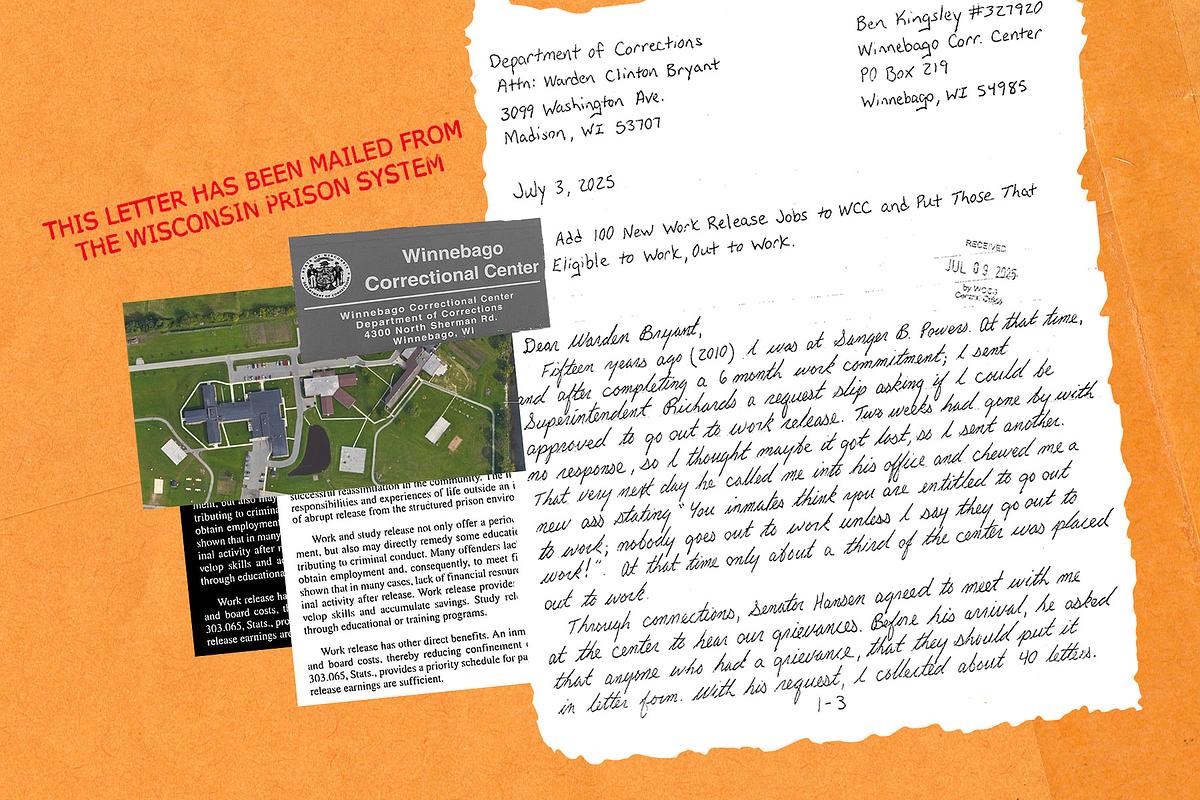 THIS LETTER HAS BEEN MAILED FROM
THE WISCONSIN PRISON SYSTEM
Winnebago
Correctional Center
Winnebago Correctional Center
Department of Corrections
4300 North Sherman Rd.
Winnebago, WI
ment, but also may
tributing to crimina
obtain employment
shown that in many
inal activity after r
velop skills and ac
through educationa
Work release ha
and board costs, t
303.065, Stats., pro
release earnings are
successful reassimilation in the community. The
responsibilities and experiences of life outside an i
of abrupt release from the structured prison enviro
Work and study release not only offer a period
ment, but also may directly remedy some educatio
tributing to criminal conduct. Many offenders lac
obtain employment and, consequently, to meet fi
shown that in many cases, lack of financial resourc
inal activity after release. Work release provides
velop skills and accumulate savings. Study rel
through educational or training programs.
Work release has other direct benefits. An inm
and board costs, thereby reducing confinement
303.065, Stats., provides a priority schedule for pa
release earnings are sufficient.
Ben Kingsley #327920
Winnebago Corr. Center
PO Box 219
Winnebago, WI 54985
Department of Corrections
Attn: Warden Clinton Bryant
3099 Washington Ave.
Madison, WI 53707
July 3, 2025
Add 100 New Work Release Jobs to WCC and Put Those That
Eligible to Work, Out to Work.
RECEIVED
JUL 09 2025
by WCCS
Central Office
Dear Warden Bryant,
Fifteen years ago (2010) I was at Sanger B. Powers. At that time,
and after completing a 6 month work commitment; I sent
Superintendent Richards a request slip asking if I could be
approved to go out to work release. Two weeks had gone by with
no response, so I thought maybe it got lost, so I sent another.
That very next day he called me into his office and chewed me a
new ass stating "You inmates think you are entitled to go out
to work; nobody goes out to work unless I say they go out to
work!". At that time only about a third of the center was placed
out to work.
Through connections, Senator Hansen agreed to meet with me
at the center to hear our grievances. Before his arrival, he asked
that anyone who had a grievance, that they should put it
in letter form. With his request, I collected about 40 letters.
1-3